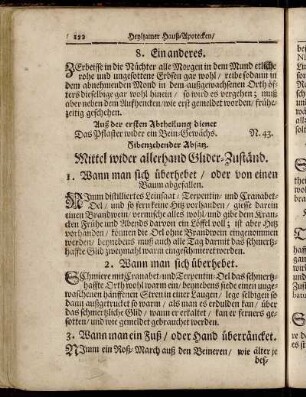 122 Heylsamer Hauß-Apotecken/
8. Ein anderes.
ZErbeisse in die Nüchter alle Morgen in dem Mund etliche
rohe und ungesottene Erbsen gar wohl / reibe sodann in
dem abnehmenden Mond in dem außgewachsenen Orth öff-
ters dieselbige gar wohl hinein / so wird es vergehen; muß
aber neben dem Auffheucken/ wie erst gemeldet worden/ frühe-
zeitig geschehen.
Auß der ersten Abtheilung dienet
Das Pflaster wider ein Bein-Gewächs. N. 43.
Sibenzehender Absatz.
Mittel wider allerhand Glider-Zuständ.
1. Wann man sich überhebet / oder von einem
Baum abgefallen.
NImm distilliertes Leinsaat: Terpentin/ und Cranabet-
Oel / und so fern keine Hitz vorhanden / giesse darein
einen Brandwein/ vermische alles wohl/ und gibe dem Kran-
cken Frühe und Abends darvon ein Löffel voll; ist aber Hitz
vorhanden / können die Oel ohne Brandwein eingenommen
werden/ beynebens muß auch alle Tag darmit das schmertz-
haffte Glid zweymahl warm eingeschmieret werden.
2. Wann man sich überhebet.
SChmiere mit Cranabet und Terpentin-Oel das schmertz-
haffte Orth wohl warm ein/ beynebens siede einen unge-
waschenen hänffenen Strenn in einer Laugen/ lege selbigen so
dann außgetruckter so warm / als man es erdulden kan / über
das schmertzliche Glid / wann er erkaltet / kan er ferners ge-
sotten / und wie gemeldet gebrauchet werden.
3. Wann man ein Fuß/ oder Hand überräncket.
NImm ein Roß-March auß den Beineren/ wie älter je
bes-